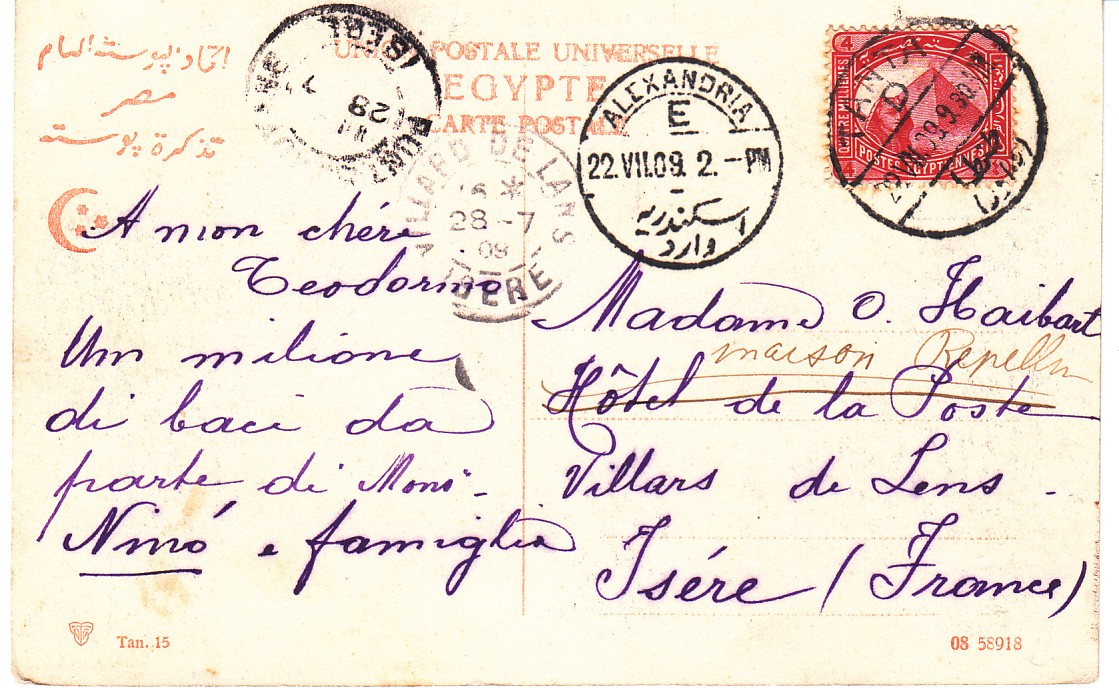 اتحاد پوسته العام
مصر
تذكرة پوسته
UNION POSTALE UNIVERSELLE
EGYPTE
CARTE POSTALE
ISERE
28
VILLARD DE LANS
28 -7
09
ISERE
ALEXANDRIA
E
22.VII.09. 2. -PM
اسكندريه
وارد
4
4
POSTES EGYPTIENNES
TANTA
D
A mon chére
Teodorino
Un milione
di baci da
parte di Mons.
Ninó e famiglia
Madame O. Haibart
maison Repellin
Hôtel de la Poste
Villars de Lens.
Isére (France)
Tan. 15
08 58918